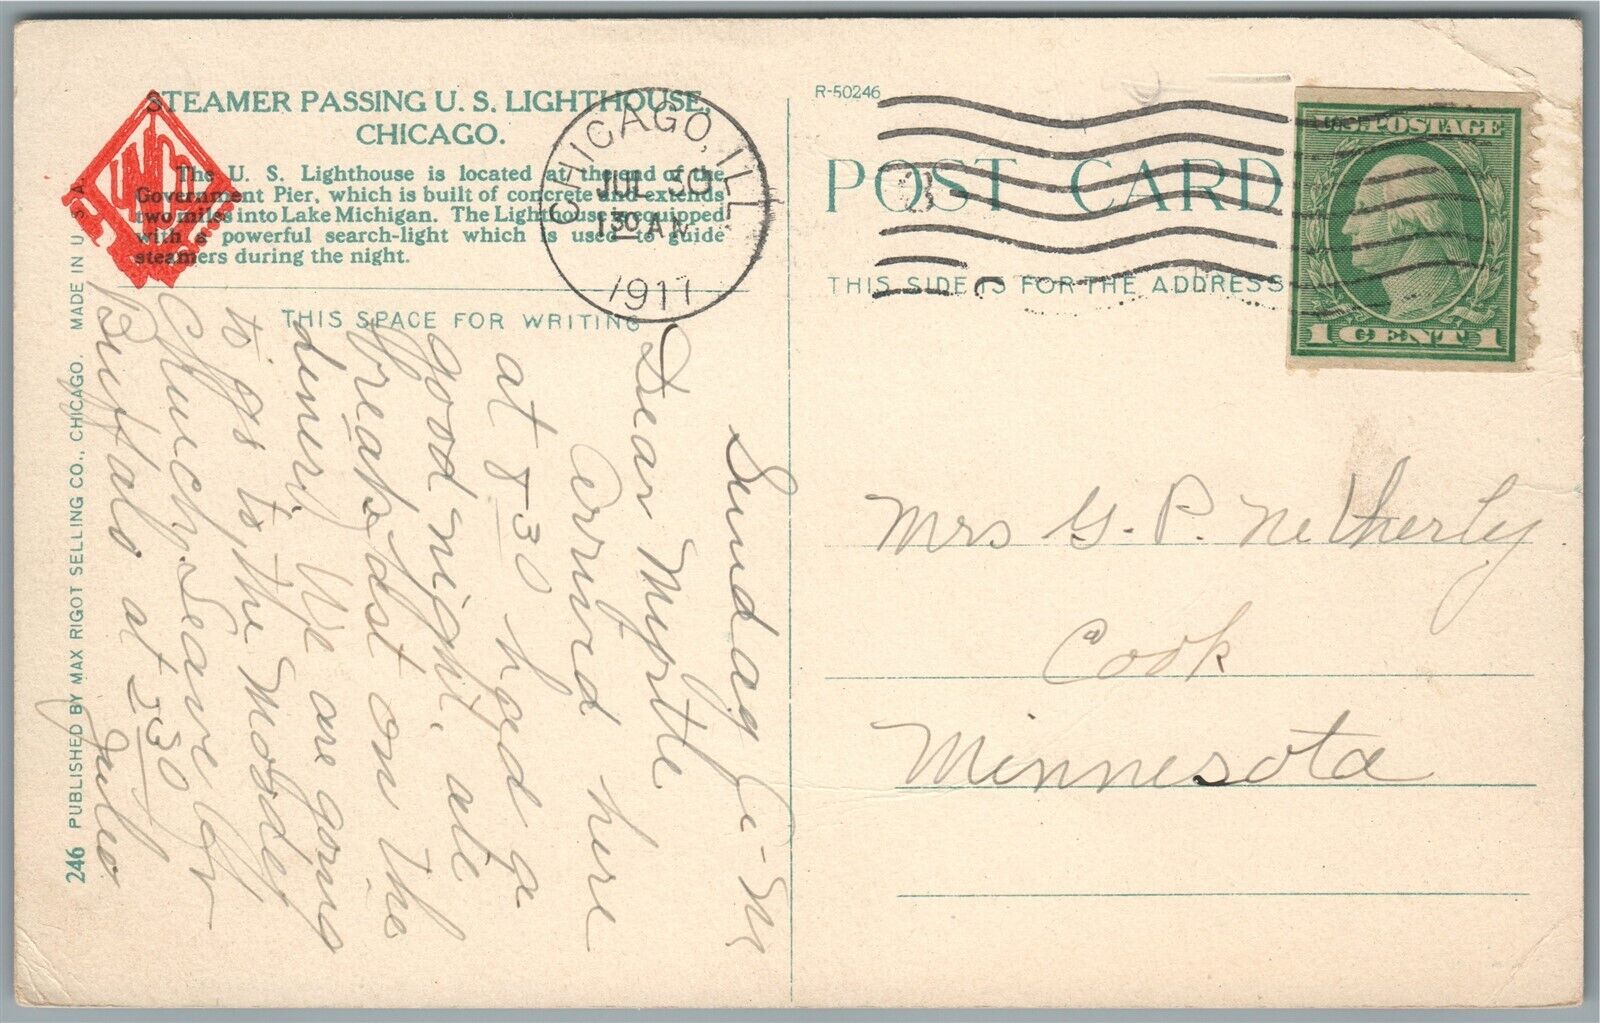 STEAMER PASSING U. S. LIGHTHOUSE,
CHICAGO.
The U. S. Lighthouse is located at the end of the
Government Pier, which is built of concrete and extends
two miles into Lake Michigan. The Lighthouse is equipped
with a powerful search-light which is used to guide
steamers during the night.
THIS SPACE FOR WRITING
CHICAGO, ILL.
JUL 30
1 30 AM
1917
R-50246
POST CARD
THIS SIDE IS FOR THE ADDRESS
U.S. POSTAGE
1 CENT 1
Sunday
Dear Myrtle
Arrived here
at 8-30 had a
good night, ate
breakfast on the
diner. We are going
to go to the
Church. Leave for
Buffalo at 530
Mrs G. P. Netherly
Cook
Minnesota
246 PUBLISHED BY MAX RIGOT SELLING CO., CHICAGO. MADE IN U. S. A.